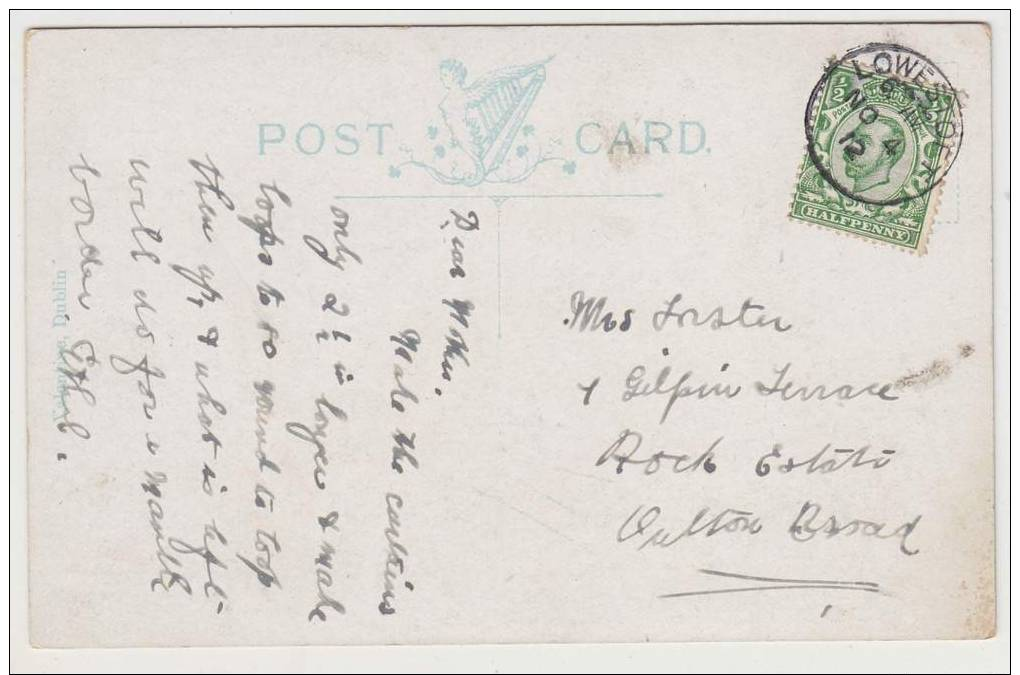 POST CARD.
LOWESTOFT
NO 4
12
1/2
HALFPENNY
Dear Mother.
Make the curtains
only 2 1/2 in longer & make
loops to go round to loop
them up, & what is left
will do for a mantle
border Ethel.
Dublin
Mrs Forster
Gilpin Terrace
Rock Estate
Oulton Broad